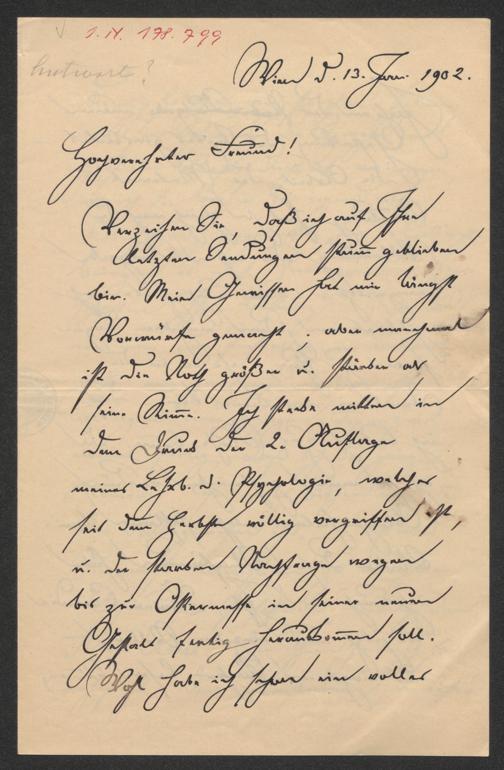 I. N. 178.799
Antwort?
Wien d. 13. Jan. 1902.
Hochverehrter Freund!
Verzeihen Sie, daß ich auf Ihre
letzten Sendungen stumm geblieben
bin. Mein Gewissen hat mir längst
Vorwürfe gemacht; aber manchmal
ist die Noth größer u. stärker als
seine Stimme. Ich stecke mitten in
dem Druck der 2. Auflage
meines Lehrb. d. Psychologie, welches
seit dem Herbste völlig vergriffen ist,
u. der starken Nachfrage wegen
bis zur Ostermesse in seiner neuen
Gestalt fertig herauskommen soll.
Wohl habe ich schon ein volles